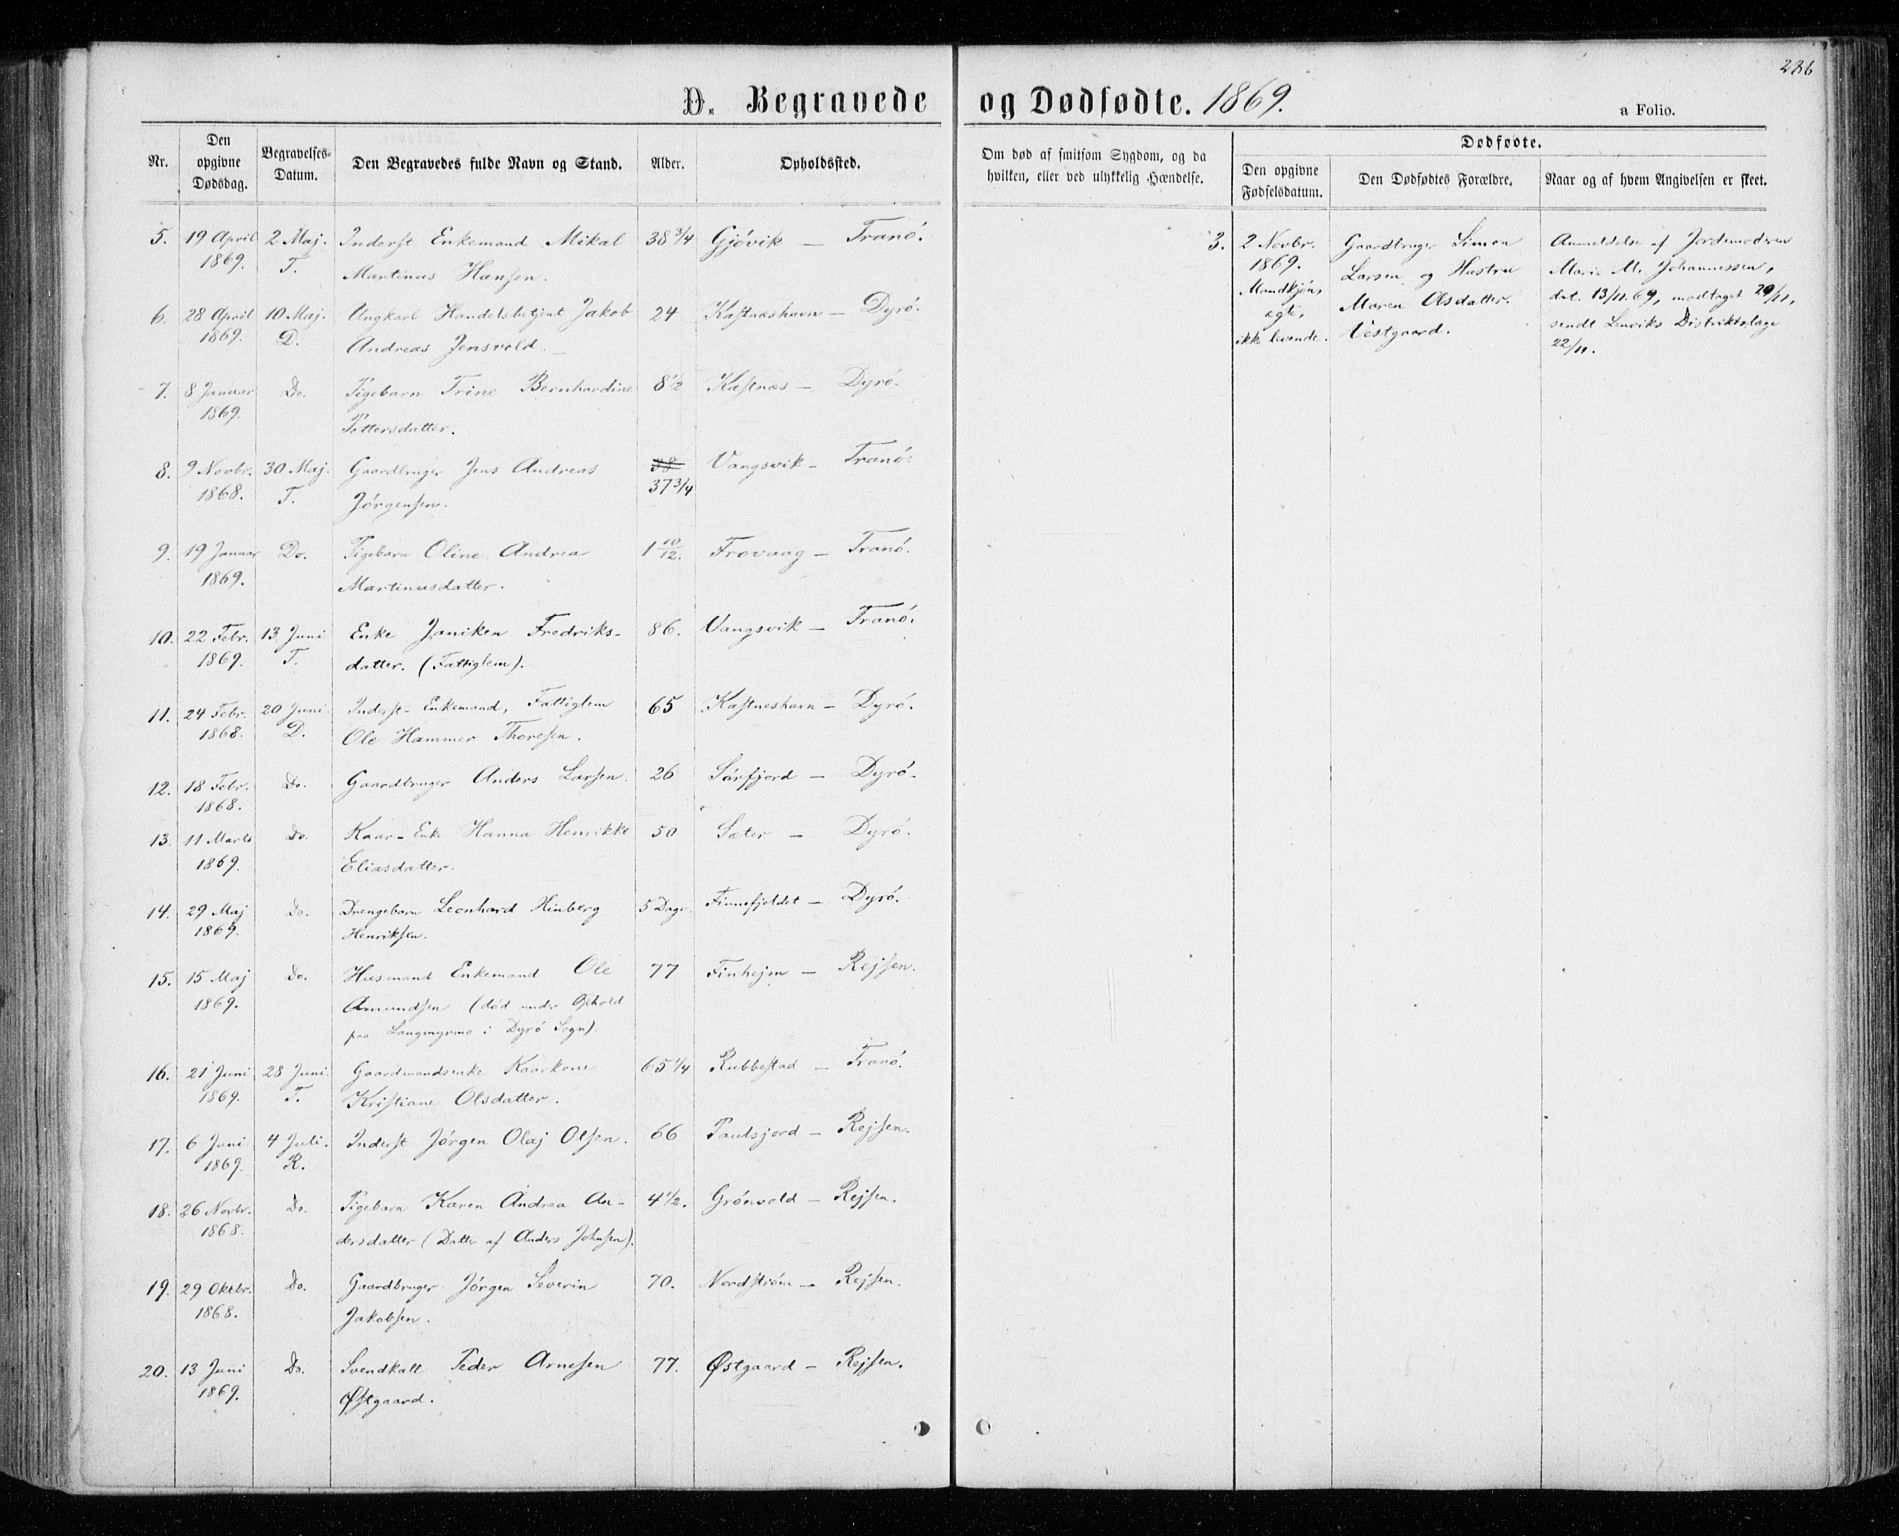 286
D. Begravede og Dødfødte. 1869.
a Folio.
Nr.
Den opgivne Dødsdag.
Begravelses-Datum.
Den Begravedes fulde Navn og Stand.
Alder.
Opholdssted.
Om død af smitsom Sygdom, og da hvilken, eller ved ulykkelig Hændelse.
Dødfødte.
Den opgivne Fødselsdatum.
Den Dødfødtes Forældre.
Naar og af hvem Angivelsen er skeet.
5. 19 April 2 Maj. Inderst Enkemand Mikal 38 3/4 Gjövik — Tranö.
1869. T. Martinus Hansen.
6. 28 April 10 Maj. Ungkarl Handelsbetjent Jakob 24 Kastneshavn — Dyrö.
1869. D. Andreas Jensvold.
7. 8 Januar Do. Pigebarn Trine Bernhardine 8 1/2 Kastnes — Dyrö.
1869. Pettersdatter.
8. 9 Novbr. 30 Maj. Gaardbruger Jens Andreas 38 Vangsvik — Tranö.
1868. T. Jörgensen. 37 3/4
9. 19 Januar Do. Pigebarn Oline Andrea 1 10/12. Frovaag — Tranö.
1869. Martinusdatter.
10. 22 Febr. 13 Juni Enke Janiken Fredriks- 86. Vangsvik — Tranö.
1869. T. datter. (Fattiglem).
11. 24 Febr. 20 Juni. Inderst- Enkemand, Fattiglem 65 Kastneshavn — Dyrö.
1868. D. Ole Hammer Thoresen.
12. 18 Febr. Do. Gaardbruger Anders Larsen. 26 Sörfjord — Dyrö.
1868.
13. 11 Marts Do. Kaar- Enke Hanna Henrikke 50 Sæter — Dyrö.
1869. Eliasdatter.
14. 29 Maj Do. Drengebarn Leonhard Hinberg 5 Dage. Finnefjeldet — Dyrö.
1869. Henriksen.
15. 15 Maj Do. Husmand Enkemand Ole 77 Finhejm — Rejsen.
1869. Amundsen (död under Ophold
paa Langmyrmo i Dyrö Sogn).
16. 21 Juni 28 Juni. Gaardmandsenke Kaarkone 65 1/4 Rubbestad — Tranö.
1869. T. Kristiane Olsdatter.
17. 6 Juni 4 Juli. Inderst Jörgen Olaj Olsen. 66 Paulsjord — Rejsen.
1869. R.
18. 26 Novbr. Do. Pigebarn Karen Andrea An- 4 1/2. Grönvold — Rejsen.
1868. dersdatter (Datter af Anders Johnsen).
19. 29 Oktbr. Do. Gaardbruger Jörgen Severin 70. Nordström — Rejsen.
1868. Jakobsen.
20. 13 Juni Do. Svendkall Peder Arnesen 77. Østgaard — Rejsen.
1869. Østgaard.
3. 2 Novbr. Gaardbruger Simon Anmeldelse af Jordemoderen
1869. Larsen og Hustru Marie M. Johannessen,
Mandkjön, Maren Olsdatter. dat. 13/11. 69, modtaget 20/11,
ægte, Vestgaard. sendt Lenviks Distriktslæge
ikke levende. 22/11.